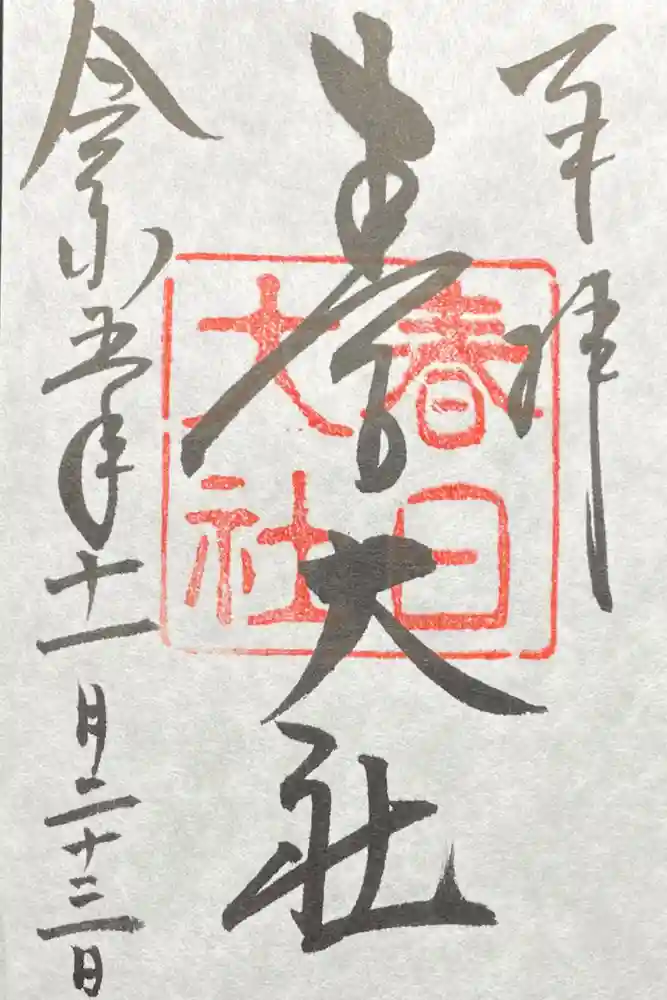 奉拝
春日大社
春日
大社
令和五年十一月二十三日